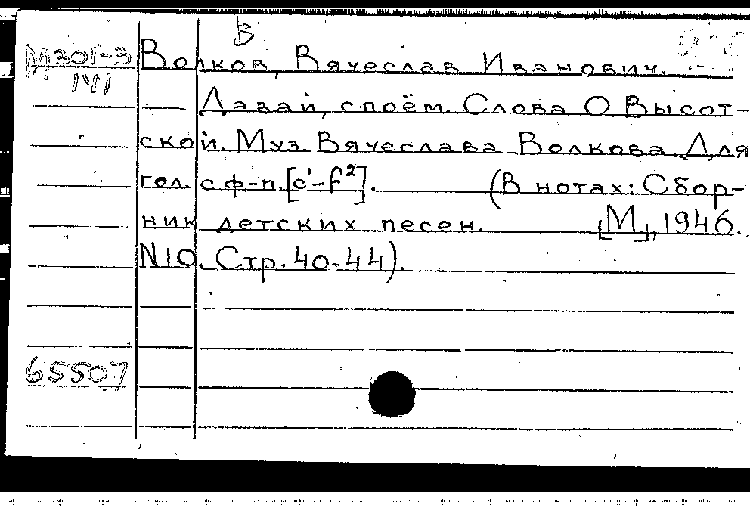 В
М201-3 Волков, Вячеслав Иванович.
141
Давай, споём. Слова О Высот-
ской. Муз. Вячеслава Волкова. Для
гол. с ф-п. [c¹-f²]. (В нотах: Сбор-
ник детских песен. [М.], 1946.
N10. Стр. 40-44).
65507